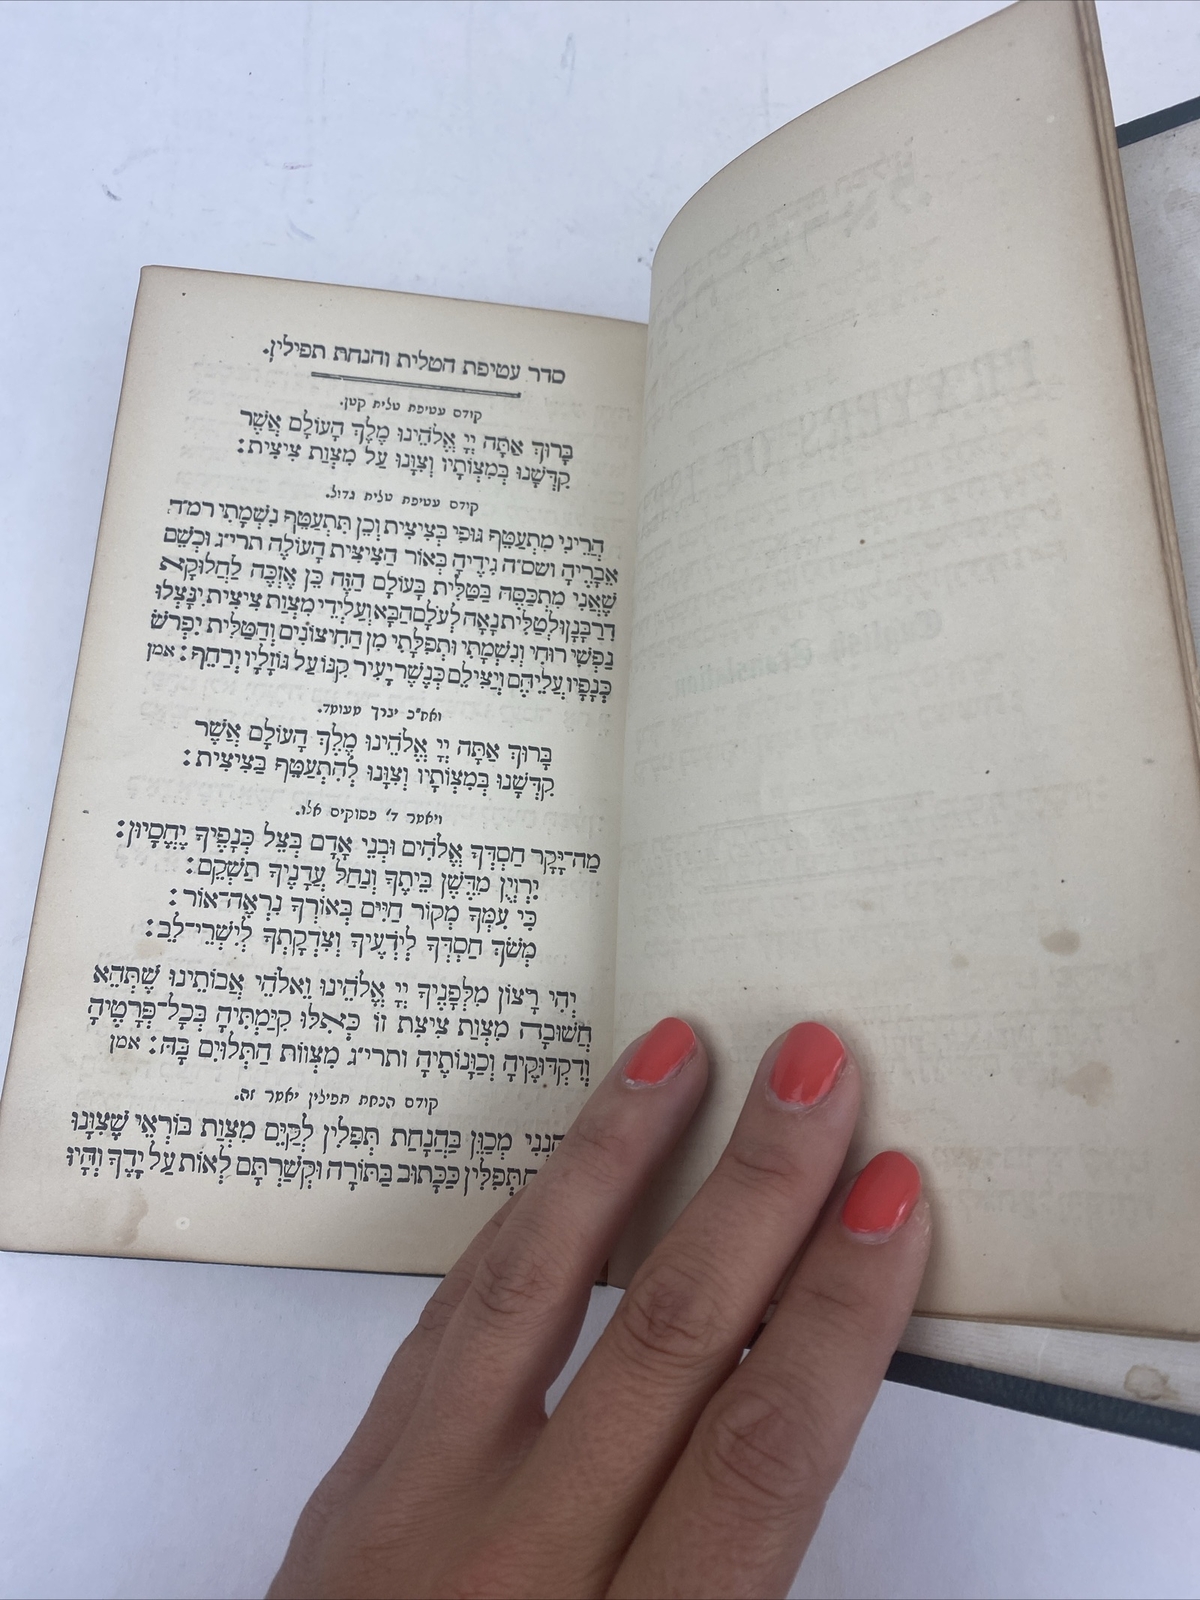 סדר עטיפת הטלית והנחת תפילין.
קודם עטיפת טלית קטן.
בָּרוּךְ אַתָּה יְיָ אֱלֹהֵינוּ מֶלֶךְ הָעוֹלָם אֲשֶׁר
קִדְּשָׁנוּ בְּמִצְוֹתָיו וְצִוָּנוּ עַל מִצְוַת צִיצִית:
קודם עטיפת טלית גדול.
הֲרֵינִי מִתְעַטֵּף גּוּפִי בְּצִיצִית וְכֵן תִּתְעַטֵּף נִשְׁמָתִי רמ״ח
אֵבָרֶיהָ ושס״ה גִידֶיהָ בְּאוֹר הַצִּיצִית הָעוֹלֶה תרי״ג וּכְשֵׁם
שֶׁאֲנִי מִתְכַּסֶּה בַּטַּלִּית בָּעוֹלָם הַזֶּה כֵּן אֶזְכֶּה לַחֲלוּקָא
דְרַבָּנָן וּלְטַלִּית נָאָה לְעֹלָם הַבָּא וְעַל יְדֵי מִצְוַת צִיצִית יִנָּצְלוּ
נַפְשִׁי רוּחִי וְנִשְׁמָתִי וּתְפִלָּתִי מִן הַחִיצוֹנִים וְהַטַּלִּית יִפְרֹשׂ
כְּנָפָיו עֲלֵיהֶם וְיַצִּילֵם כְּנֶשֶׁר יָעִיר קִנּוֹ עַל גּוֹזָלָיו יְרַחֵף: אמן
ואח״כ יברך מעומד.
בָּרוּךְ אַתָּה יְיָ אֱלֹהֵינוּ מֶלֶךְ הָעוֹלָם אֲשֶׁר
קִדְּשָׁנוּ בְּמִצְוֹתָיו וְצִוָּנוּ לְהִתְעַטֵּף בַּצִּיצִית:
ויאמר ד׳ פסוקים אלו.
מַה־יָּקָר חַסְדְּךָ אֱלֹהִים וּבְנֵי אָדָם בְּצֵל כְּנָפֶיךָ יֶחֱסָיוּן:
יִרְוְיֻן מִדֶּשֶׁן בֵּיתֶךָ וְנַחַל עֲדָנֶיךָ תַשְׁקֵם:
כִּי עִמְּךָ מְקוֹר חַיִּים בְּאוֹרְךָ נִרְאֶה־אוֹר:
מְשֹׁךְ חַסְדְּךָ לְיֹדְעֶיךָ וְצִדְקָתְךָ לְיִשְׁרֵי־לֵב:
יְהִי רָצוֹן מִלְּפָנֶיךָ יְיָ אֱלֹהֵינוּ וֵאלֹהֵי אֲבוֹתֵינוּ שֶׁתְּהֵא
חֲשׁוּבָה מִצְוַת צִיצִת זוֹ כְּאִלּוּ קִיַּמְתִּיהָ בְּכָל־פְּרָטֶיהָ
וְדִקְדּוּקֶיהָ וְכַוָּנוֹתֶיהָ ותרי״ג מִצְווֹת הַתְּלוּיִם בָּהּ: אמן
קודם הנחת תפילין יאמר זה.
מְכַוֵּן בַּהֲנָחַת תְּפִלִּין לְקַיֵּם מִצְוַת בּוֹרְאִי שֶׁצִּוָּנוּ
תְּפִלִּין כַּכָּתוּב בַּתּוֹרָה וּקְשַׁרְתָּם לְאוֹת עַל יָדֶךָ וְהָיוּ